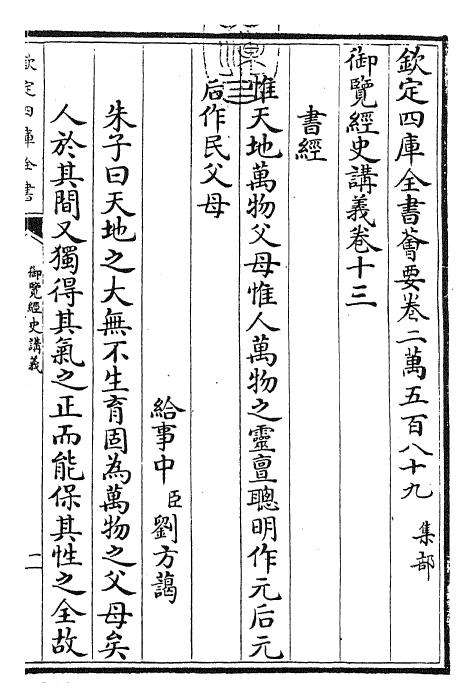 欽定四庫全書薈要卷二萬五百八十九 集部
御覽經史講義卷十三
書經
惟天地萬物父母惟人萬物之靈亶聰明作元后元
后作民父母
給事中臣劉方藹
朱子曰天地之大無不生育固為萬物之父母矣
人於其間又獨得其氣之正而能保其性之全故
欽定四庫全書
御覽經史講義
二